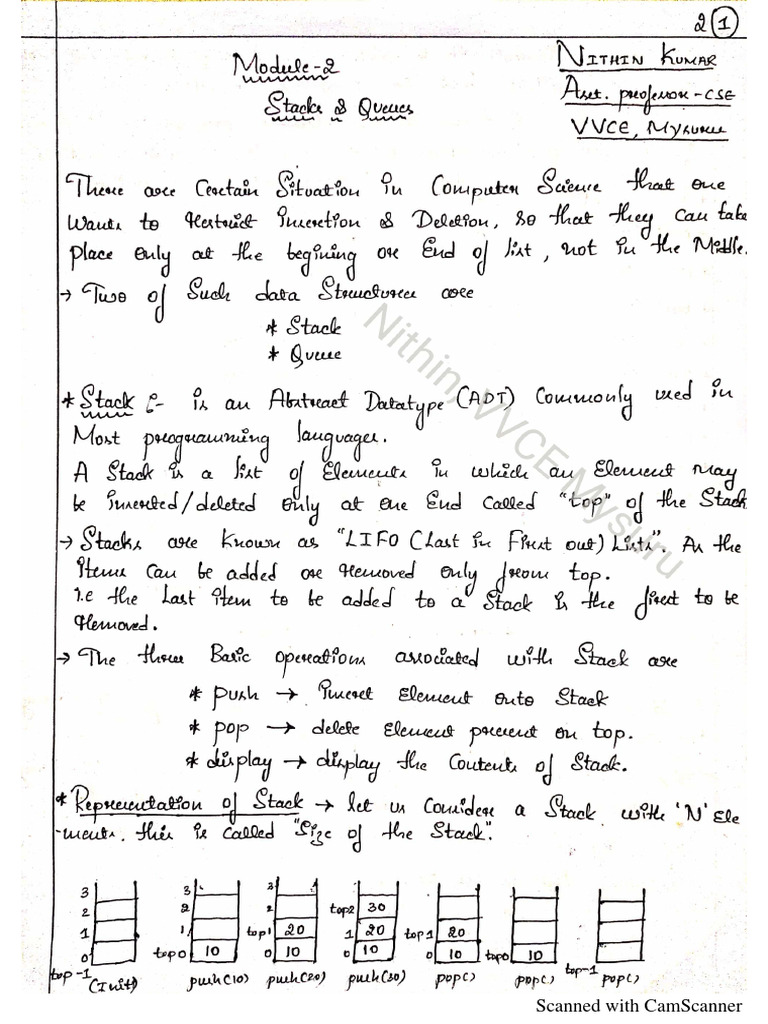 2 (1)
Module-2
Stacks & Queues
NITHIN KUMAR
Asst. professor - CSE
VVCE, Mysuru
There are Certain Situation in Computer Science that one
Wants to restrict insertion & Deletion, so that they can take
place only at the begining or End of list, not in the Middle.
→ Two of Such data Structures are
* Stack
* Queue
* Stack :- is an Abstract Datatype (ADT) Commonly used in
Most programming languages.
A Stack is a list of Elements in which an Element may
be inserted/deleted only at one End called "top" of the Stack
→ Stacks are known as "LIFO (Last in First out) Lists". As the
items can be added or removed only from top.
i.e the Last item to be added to a Stack is the first to be
removed.
→ The three Basic operations associated with Stack are
* push → insert Element onto Stack
* pop → delete Element present on top.
* display → display the Contents of Stack.
* Representation of Stack → let us Consider a Stack with 'N' Ele
-ments. this is called "Size of the Stack".
3 3 3
2 2 2 top2 30
1 1 top1 20 1 20 top1 20
0 top0 10 0 10 0 10 0 10 top0 10
top-1 (Init) push(10) push(20) push(30) pop() pop() top-1 pop()
Nithin, VVCE, Mysuru
Scanned with CamScanner